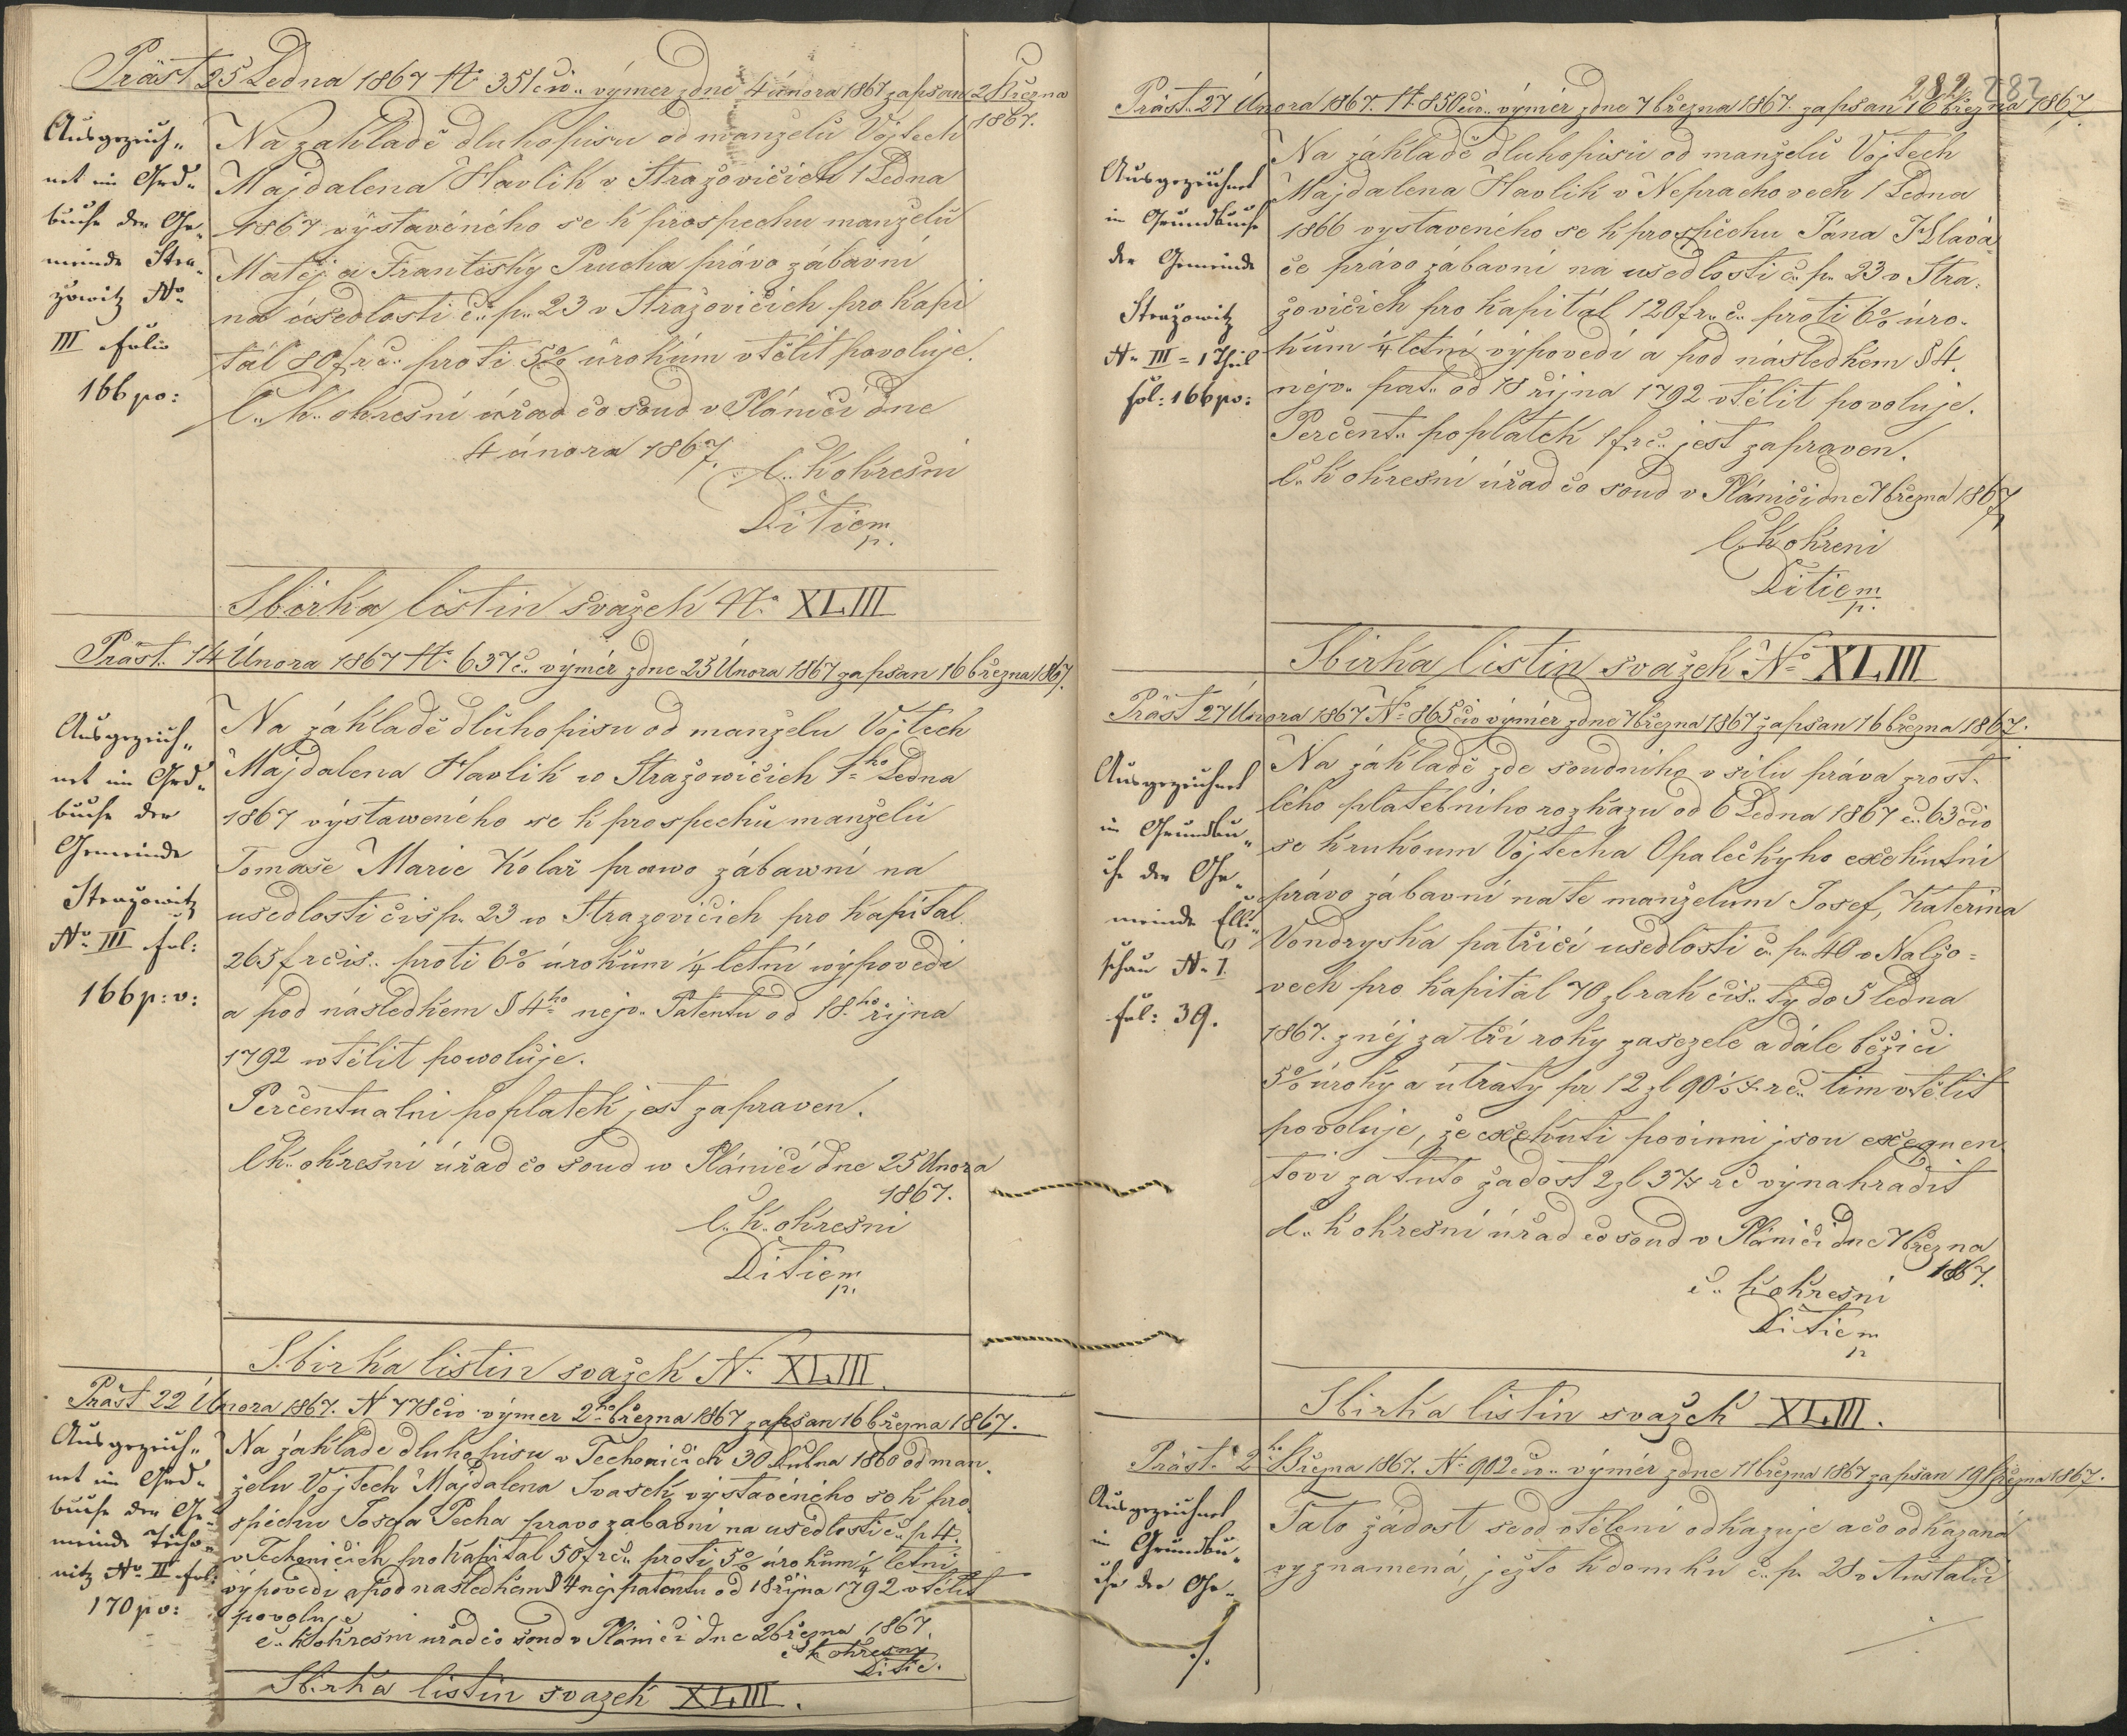 Präst. 25 Ledna 1867 N. 351 čio. výmer zdne 4 února 1867 zapsan 2 Března
1867.
Ausgezeich-
net im Grd-
buche der Ge-
meinde Stra-
zowitz No
III Folio
166 po:
Na zakladě dluhopisu od manželů Vojtech
Majdalena Havlik v Stražovičich 1 Ledna
1867 výstavéného se k prospechu manželů
Matěj a Františky Prucha právo zábavní
na úsedlosti č. p. 23 v Stražovičich pro kapi
tál 80 fr. č. proti 5% úrokům vtělit povoluje.
C. k. okresní úřad čo soud v Plánici dne
4 února 1867.
C. k okresni
Ditie m
p.
Sbirka listin svazek N. XLIII
Präst. 14 Února 1867 N. 637 č. výmér zdne 25 Února 1867 zapsan 16 března 1867.
Ausgezeich-
net im Grd-
buche der
Gemeinde
Strazowitz
No III fol:
166 p: v:
Na základě dluhopisu od manzelu Vojtech
Majdalena Havlik w Stražowičich 1ho Ledna
1867 výstaweného se k prospechu manželů
Tomaše Marie Kolař prawo zábawní na
usedlosti čis p. 23 w Strazovičich pro kapital
265 fr čis. proti 6% úrokům ¼ letní wýpovedi
a pod následkem § 4ho nejv. Patentu od 18ho řijna
1792 wtělit powoluje.
Percentualni poplatek jest zapraven.
C k. okresní úřad čo soud w Plánici dne 25 Unora
1867.
C. k. okresni
Ditie m
p.
Sbirka listin svazek N. XLIII.
Präst 22 Února 1867. N 778 čio výmer 2ho března 1867 zapsan 16 března 1867.
Ausgezeich-
net im Grd-
buche der Ge-
meinde Techo-
nitz No II fol:
170 po:
Na základe dluhopisu v Techonicich 30 dubna 1860 od man.
zelu Vojtech Majdalena Svasek výstaveného se k pro
spechu Josefa Pecha pravo zabavni na usedlosti č. p 4.
v Techonicich pro kapital 50 fr č. proti 5% úrokům ¼ letni
výpovědi a pod nasledkem § 4 nej. patentu od 18 řijna 1792 vtělit
povoluje
c. k okresni uřad čo soud v Plánici dne 2 března 1867.
c k okresny
Ditie.
Sbirka listin svazek XLIII.
282 282
Präst. 27 Února 1867. N. 850 čio. výmér zdne 7 března 1867. zapsan 16 března 1867.
Ausgezeichnet
in Grundbuche
der Gemeinde
Strazowitz
N. III = 1 Theil
fol: 166 po:
Na základě dluhopisu od manželů Vojtech
Majdalena Havlik v Neprachovech 1 Ledna
1866 vystaveného se k prospěchu Jána Hlavá
če právo zábavní na usedlosti č. p. 23 v Stra.
žovičich pro kapitál 120 fr. č. proti 6% úro.
kům ¼ letní výpovedi a pod následkem § 4.
nejv. pat. od 18 rijna 1792 vtělit povoluje.
Percent. poplatek 1 fr č. jest zapraven.
C. k okresní úřad čo soud v Plánici dne 7 března 1867
C. k okreni
Ditie m
p.
Sbirka listin svazek No XLIII
Präst 27 Února 1867 No 865 čio výmér zdne 7 března 1867 zapsan 16 března 1867.
Ausgezeichnet
im Grundbu-
che der Ge-
meinde Elli-
schau N. I
fol: 39.
Na základě zde soudniho v silu práva zrost-
lého platebniho rozkazu od 6 Ledna 1867 č. 63 čio
se k rukoum Vojtecha Opalečkyho exekutni
právo zábavní na te manželum Josef, Katerina
Vondryska patřici usedlosti č. p. 40 v Naljo=
vech pro kapital 70 zl rak čis. ty do 5 ledna
1867. z něj za tři roky zasezele a dále běžici
5% úroky a útraty pr. 12 zl 90½ x r č. tim vtělit
povoluje, že exekuti povinni jsou exequen
tovi za tuto žadost 2 zl 37 x r č vynahradit
C. k okresní úřad čo soud v Plánici dne 7 března
1867.
c. k okresni
Ditie m
p
Sbirka listin svazek XLIII.
Präst. 2ho Března 1867. N. 902 čio. výmér zdne 11 března 1867 zapsan 19 března 1867.
Ausgezeichnet
in Grundbu-
che der Ge-
./.
Tato žádost se od vtěleni odkazuje a čo odkazaná
vyznamená, ježto k domku č. p. 28 v